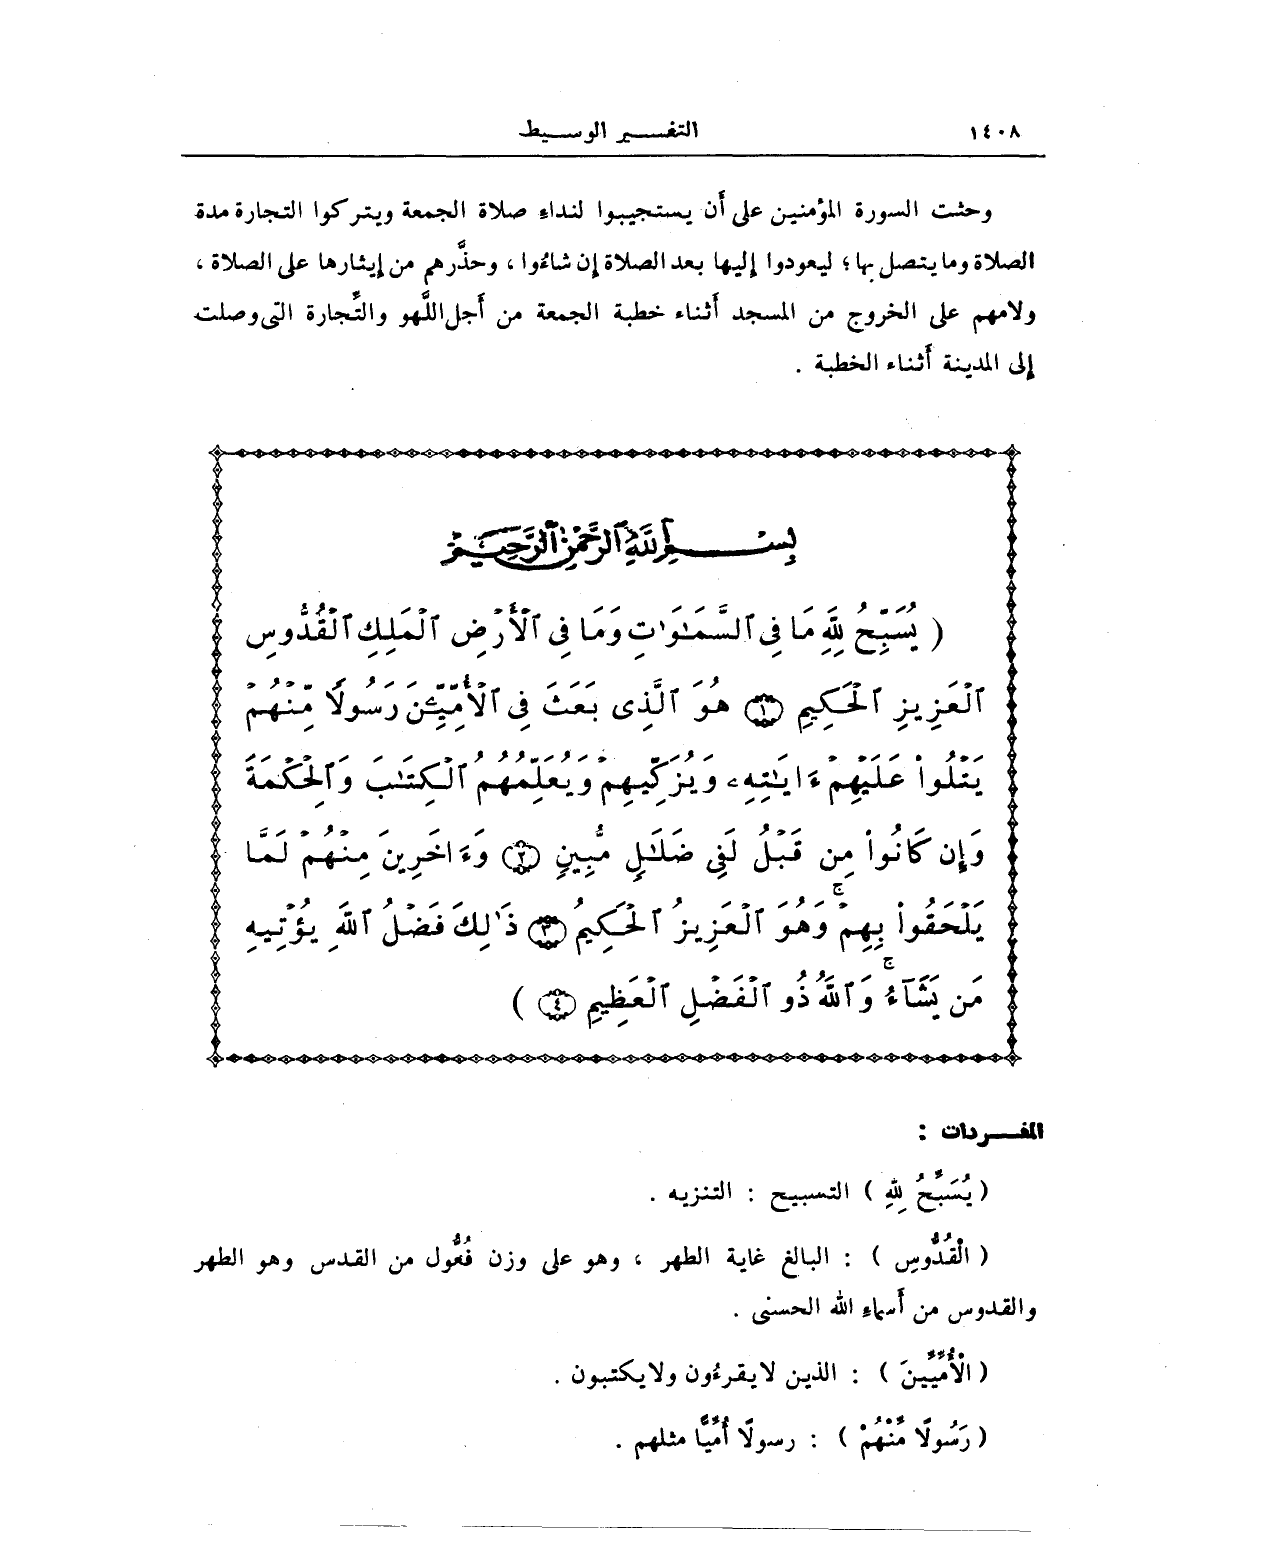 ١٤٠٨ التفسير الوسيط
وحثت السورة المؤمنين على أَن يستجيبوا لنداءِ صلاة الجمعة ويتركوا التجارة مدة
الصلاة وما يتصل بها؛ ليعودوا إليها بعد الصلاة إن شاءُوا ، وحذَّرهم من إيثارها على الصلاة ،
ولامهم على الخروج من المسجد أَثناء خطبة الجمعة من أَجل اللَّهو والتِّجارة التى وصلت
إلى المدينة أَثناء الخطبة .
بِسْمِ ٱللَّهِ ٱلرَّحْمَٰنِ ٱلرَّحِيمِ
( يُسَبِّحُ لِلَّهِ مَا فِى ٱلسَّمَٰوَٰتِ وَمَا فِى ٱلْأَرْضِ ٱلْمَلِكِ ٱلْقُدُّوسِ
ٱلْعَزِيزِ ٱلْحَكِيمِ ۝١ هُوَ ٱلَّذِى بَعَثَ فِى ٱلْأُمِّيِّـۧنَ رَسُولًا مِّنْهُمْ
يَتْلُوا۟ عَلَيْهِمْ ءَايَٰتِهِۦ وَيُزَكِّيهِمْ وَيُعَلِّمُهُمُ ٱلْكِتَٰبَ وَٱلْحِكْمَةَ
وَإِن كَانُوا۟ مِن قَبْلُ لَفِى ضَلَٰلٍ مُّبِينٍ ۝٢ وَءَاخَرِينَ مِنْهُمْ لَمَّا
يَلْحَقُوا۟ بِهِمْ ۚ وَهُوَ ٱلْعَزِيزُ ٱلْحَكِيمُ ۝٣ ذَٰلِكَ فَضْلُ ٱللَّهِ يُؤْتِيهِ
مَن يَشَآءُ ۚ وَٱللَّهُ ذُو ٱلْفَضْلِ ٱلْعَظِيمِ ۝٤ )
المفردات :
( يُسَبِّحُ لِلهِ ) التسبيح : التنزيه .
( الْقُدُّوسِ ) : البالغ غاية الطهر ، وهو على وزن فُعُّول من القدس وهو الطهر
والقدوس من أَسماءِ الله الحسنى .
( الْأُمِّيِّينَ ) : الذين لا يقرءُون ولا يكتبون .
( رَسُولًا مِّنْهُمْ ) : رسولًا أُمِّيًّا مثلهم .